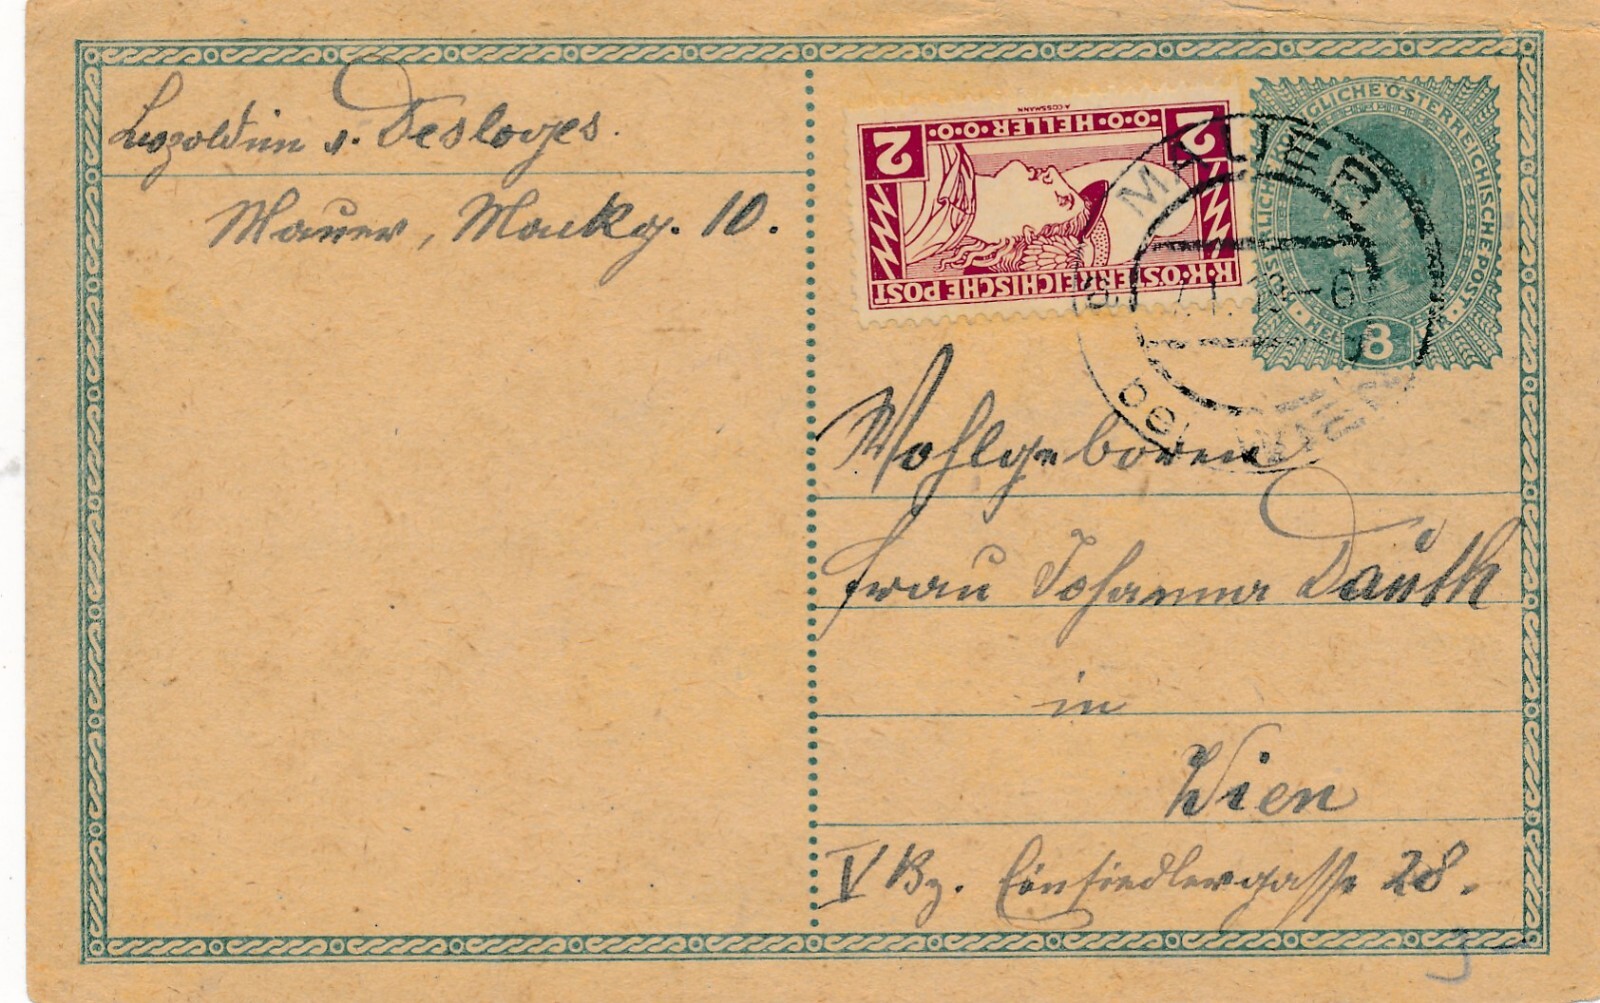 Leopoldine v. Desloges.
Mauer, Mackg. 10.
A. COSSMANN
2 ·O·O·HELLER·O·O· 2
K·K·ÖSTERREICHISCHE POST
KAISERLICHE KÖNIGLICHE ÖSTERREICHISCHE POST
8
MAUER
Wohlgeboren
Frau Johanna Dauth
in
Wien
V Bz. Einsiedlergasse 28.